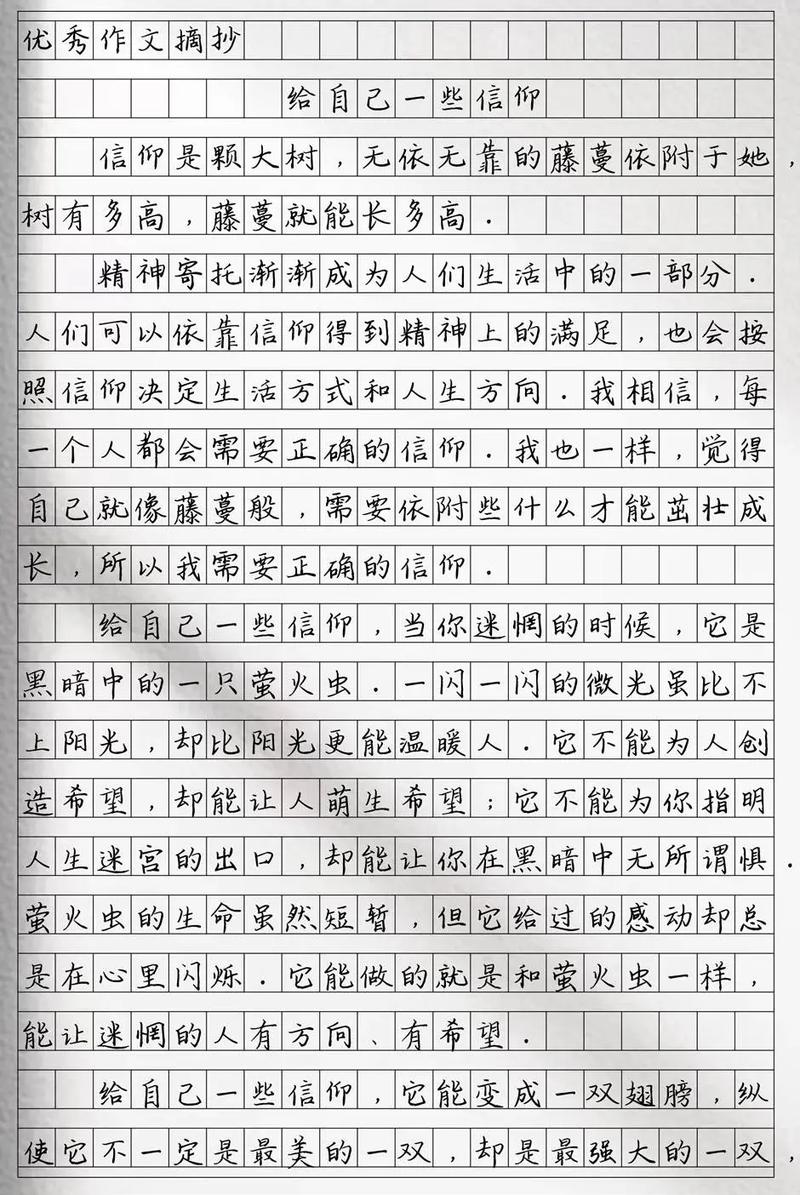 优秀作文摘抄
给自己一些信仰
信仰是颗大树，无依无靠的藤蔓依附于她，
树有多高，藤蔓就能长多高.
精神寄托渐渐成为人们生活中的一部分.
人们可以依靠信仰得到精神上的满足，也会按
照信仰决定生活方式和人生方向.我相信，每
一个人都会需要正确的信仰.我也一样，觉得
自己就像藤蔓般，需要依附些什么才能茁壮成
长，所以我需要正确的信仰.
给自己一些信仰，当你迷惘的时候，它是
黑暗中的一只萤火虫.一闪一闪的微光虽比不
上阳光，却比阳光更能温暖人.它不能为人创
造希望，却能让人萌生希望；它不能为你指明
人生迷宫的出口，却能让你在黑暗中无所谓惧.
萤火虫的生命虽然短暂，但它给过的感动却总
是在心里闪烁.它能做的就是和萤火虫一样，
能让迷惘的人有方向、有希望.
给自己一些信仰，它能变成一双翅膀，纵
使它不一定是最美的一双，却是最强大的一双，